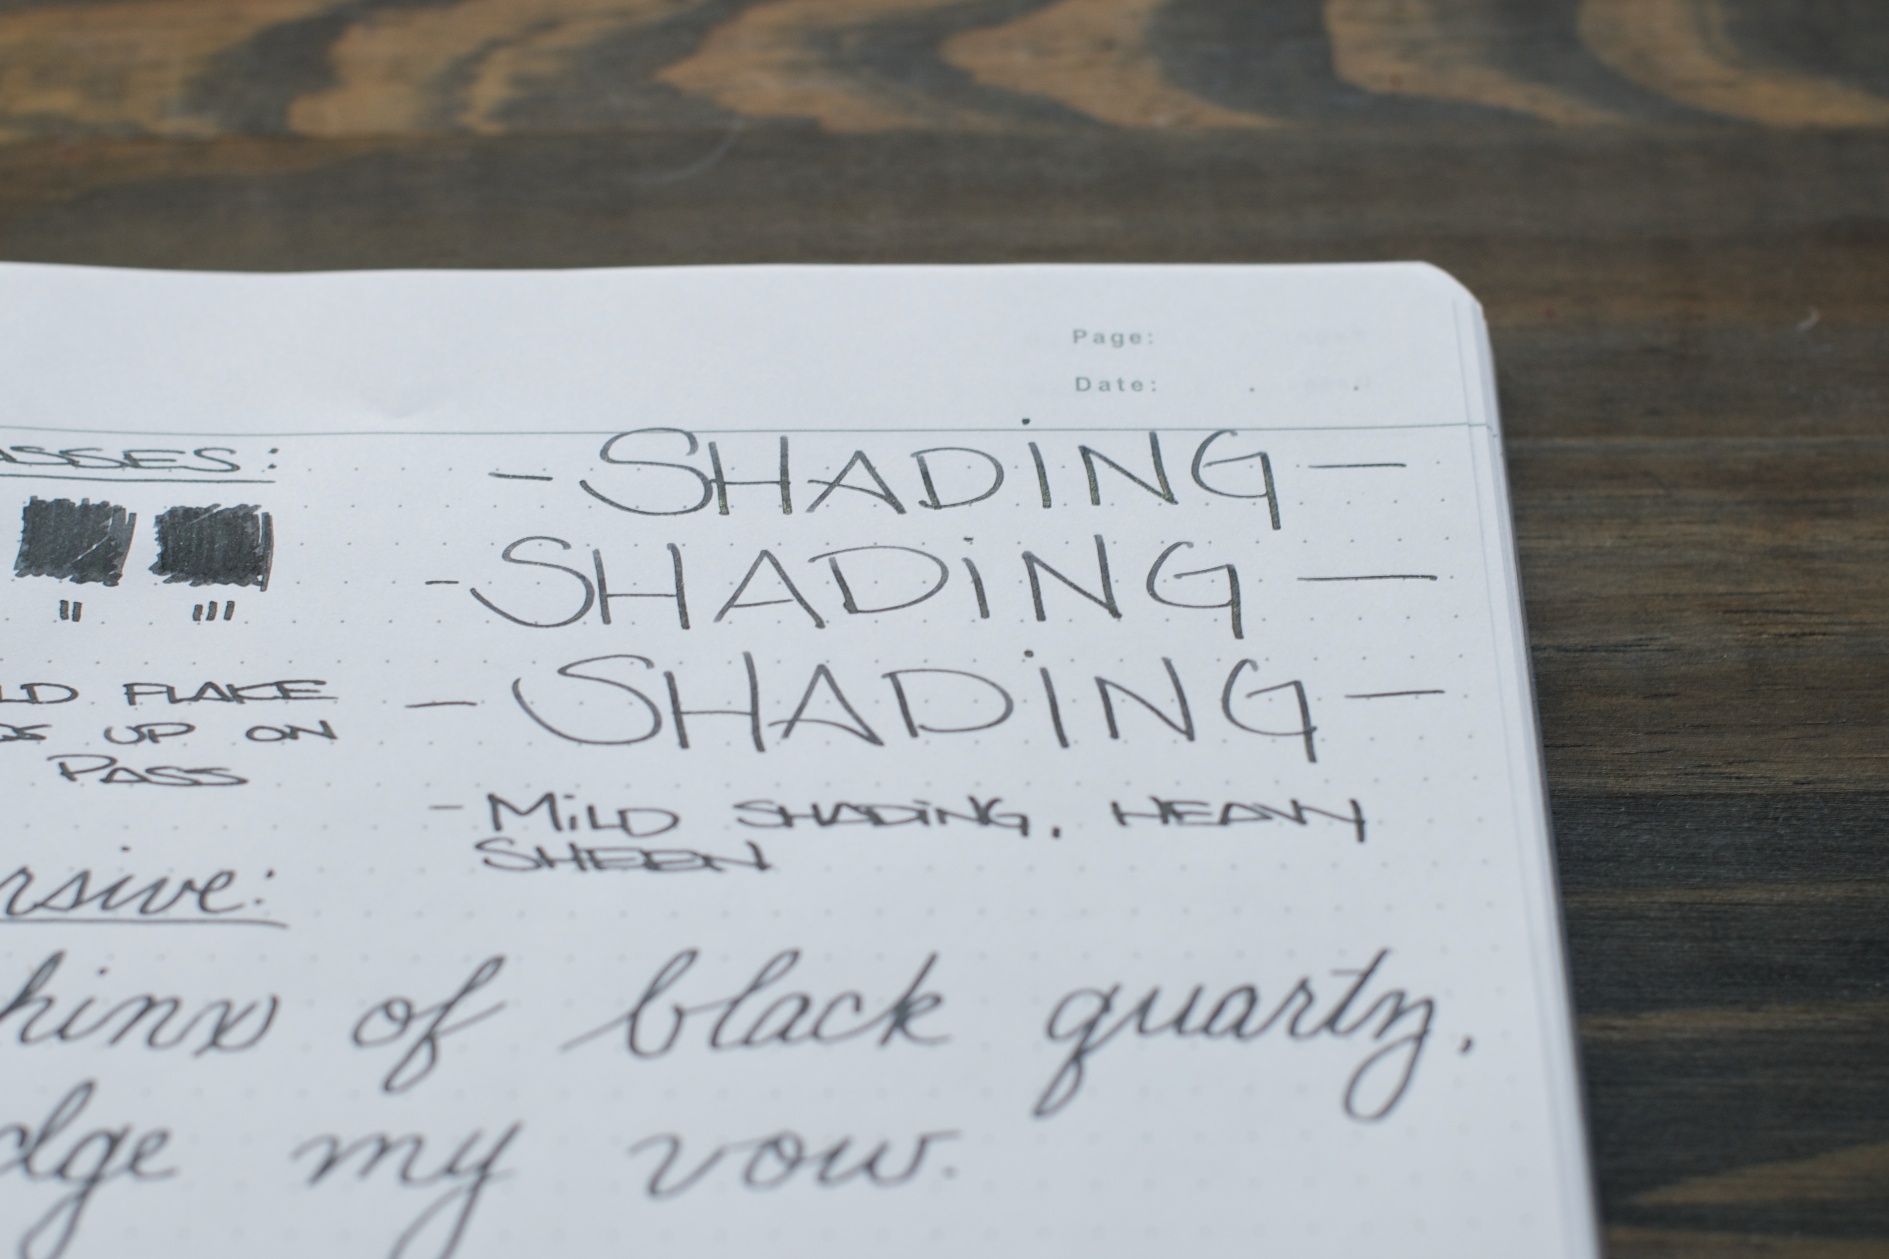 Page:
Date: . .
ASSES:
II III
- SHADiNG -
- SHADiNG -
- SHADiNG -
LD FLAKE
UP ON
PASS
- MiLD SHADiNG, HEAVY
SHEEN
rsive:
hinx of black quartz,
dge my vow.